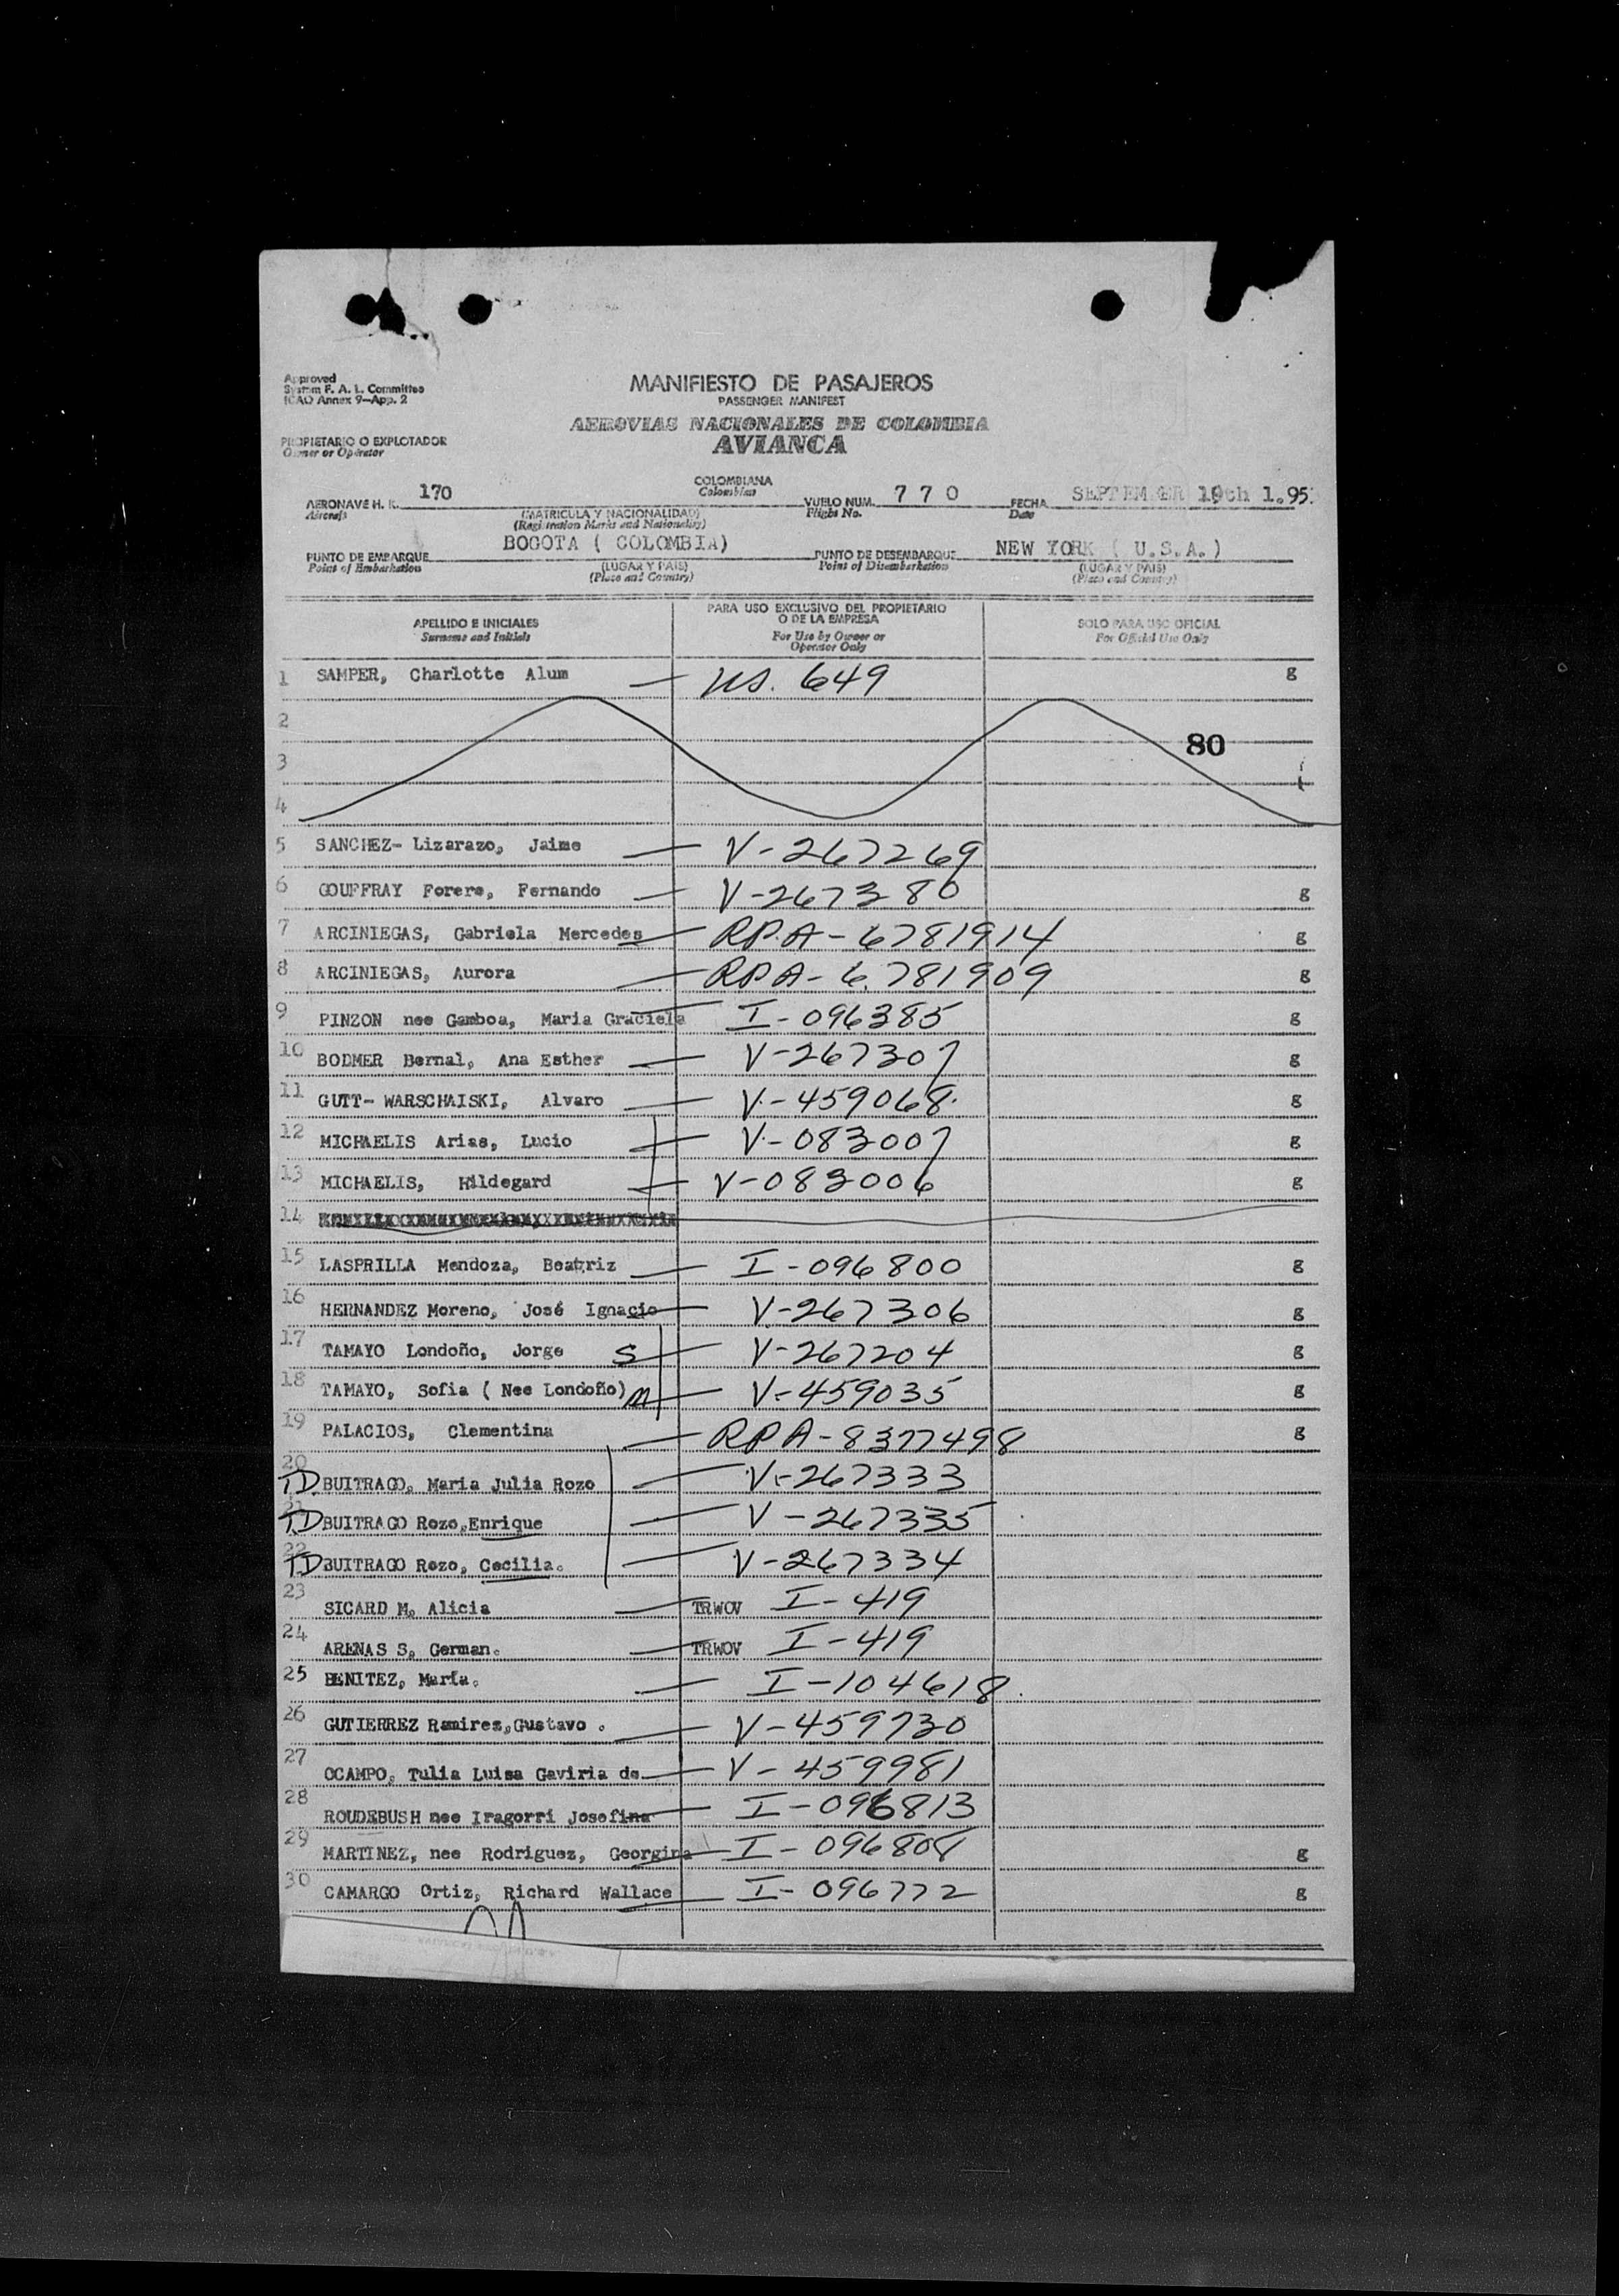 Approved
System F. A. L. Committee
ICAO Annex 9—App. 2
MANIFIESTO DE PASAJEROS
PASSENGER MANIFEST
AEROVIAS NACIONALES DE COLOMBIA
AVIANCA
PROPIETARIO O EXPLOTADOR
Owner or Operator
AERONAVE H. K. 170 COLOMBIANA VUELO NUM. 7 7 0 FECHA SEPTEMBER 19th 1.95
Aircraft Colombian Flight No. Date
(MATRICULA Y NACIONALIDAD)
(Registration Marks and Nationality)
PUNTO DE EMBARQUE BOGOTA ( COLOMBIA) PUNTO DE DESEMBARQUE NEW YORK ( U.S.A.)
Point of Embarkation (LUGAR Y PAIS) Point of Disembarkation (LUGAR Y PAIS)
(Place and Country) (Place and Country)
APELLIDO E INICIALES
Surname and Initials
PARA USO EXCLUSIVO DEL PROPIETARIO
O DE LA EMPRESA
For Use by Owner or
Operator Only
SOLO PARA USO OFICIAL
For Official Use Only
1 SAMPER, Charlotte Alum — US. 649 g
2
80
3
4
5 SANCHEZ- Lizarazo, Jaime — V-267269
6 GOUFFRAY Forero, Fernando — V-267380 g
7 ARCINIEGAS, Gabriela Mercedes — RPA-6781914 g
8 ARCINIEGAS, Aurora — RPA-6.781909 g
9 PINZON nee Gamboa, Maria Graciela — I-096385 g
10 BODMER Bernal, Ana Esther — V-267307 g
11 GUTT- WARSCHAISKI, Alvaro — V-459068. g
12 MICHAELIS Arias, Lucio — V-083007 g
13 MICHAELIS, Hildegard — V-083006 g
14
15 LASPRILLA Mendoza, Beatriz — I-096800 g
16 HERNANDEZ Moreno, José Ignacio — V-267306 g
17 TAMAYO Londoño, Jorge S — V-267204 g
18 TAMAYO, Sofia ( Nee Londoño) M — V-459035 g
19 PALACIOS, Clementina — RPA-8377498 g
20 TD BUITRAGO, Maria Julia Rozo — V-267333
21 TD BUITRAGO Rozo, Enrique — V-267335
22 TD BUITRAGO Rozo, Cecilia. — V-267334
23 SICARD M, Alicia — TRWOV I-419
24 ARENAS S, German. — TRWOV I-419
25 BENITEZ, María. — I-104618.
26 GUTIERREZ Ramirez, Gustavo . — V-459730
27 OCAMPO, Tulia Luisa Gaviria de — V-459981
28 ROUDEBUSH nee Iragorri Josefina — I-096813
29 MARTINEZ, nee Rodriguez, Georgina — I-096808 g
30 CAMARGO Ortiz, Richard Wallace — I-096772 g